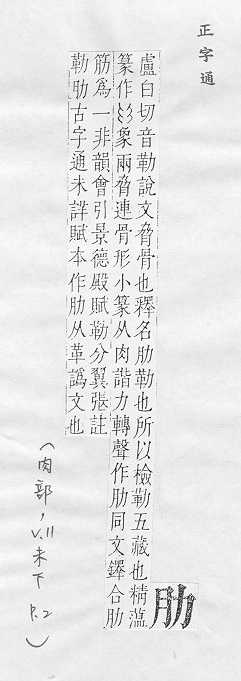 正字通
肋
盧白切音勒說文脅骨也釋名肋勒也所以檢勒五藏也精薀
篆作象兩脅連骨形小篆从肉諧力轉聲作肋同文鐸合肋
筋爲一非韻會引景德殿賦勒分翼張註
勒肋古字通未詳賦本作肋从革譌文也
(肉部, V.11 未下 P.2)